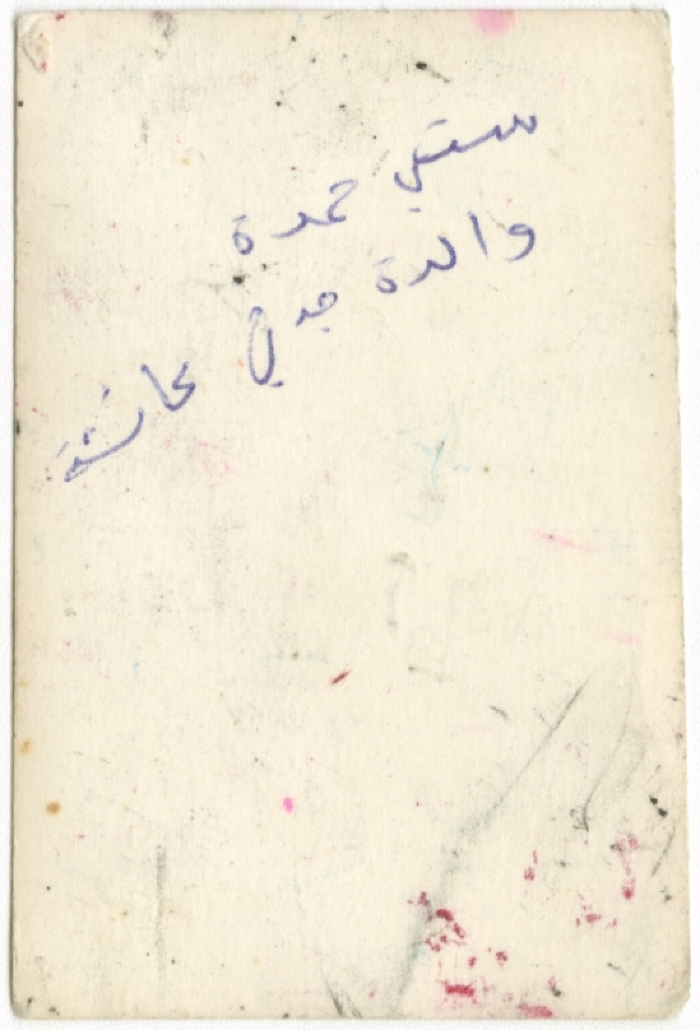 ستي حمدة
والدة جدتي عائشة